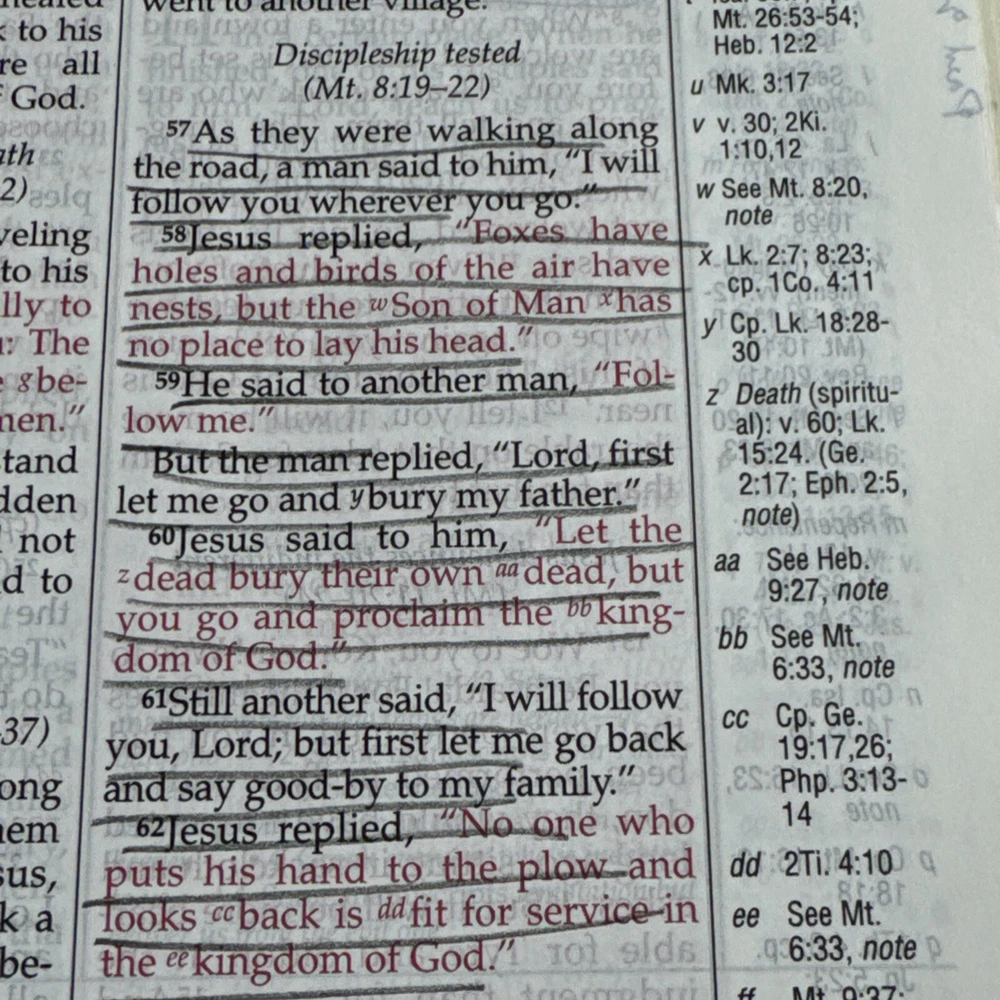 went to another village.
Discipleship tested
(Mt. 8:19–22)
57As they were walking along
the road, a man said to him, “I will
follow you wherever you go.”
58Jesus replied, “Foxes have
holes and birds of the air have
nests, but the wSon of Man xhas
no place to lay his head.”
59He said to another man, “Fol-
low me.”
But the man replied, “Lord, first
let me go and ybury my father.”
60Jesus said to him, “Let the
zdead bury their own aadead, but
you go and proclaim the bbking-
dom of God.”
61Still another said, “I will follow
you, Lord; but first let me go back
and say good-by to my family.”
62Jesus replied, “No one who
puts his hand to the plow and
looks ccback is ddfit for service in
the eekingdom of God.”
to his
re all
God.
ath
2)
veling
to his
lly to
The
gbe-
men.”
tand
dden
not
d to
37)
ong
hem
sus,
k a
be-
Mt. 26:53-54;
Heb. 12:2
u Mk. 3:17
v v. 30; 2Ki.
1:10,12
w See Mt. 8:20,
note
x Lk. 2:7; 8:23;
cp. 1Co. 4:11
y Cp. Lk. 18:28-
30
z Death (spiritu-
al): v. 60; Lk.
15:24. (Ge.
2:17; Eph. 2:5,
note)
aa See Heb.
9:27, note
bb See Mt.
6:33, note
cc Cp. Ge.
19:17,26;
Php. 3:13-
14
dd 2Ti. 4:10
ee See Mt.
6:33, note
ff Mt. 9:37;